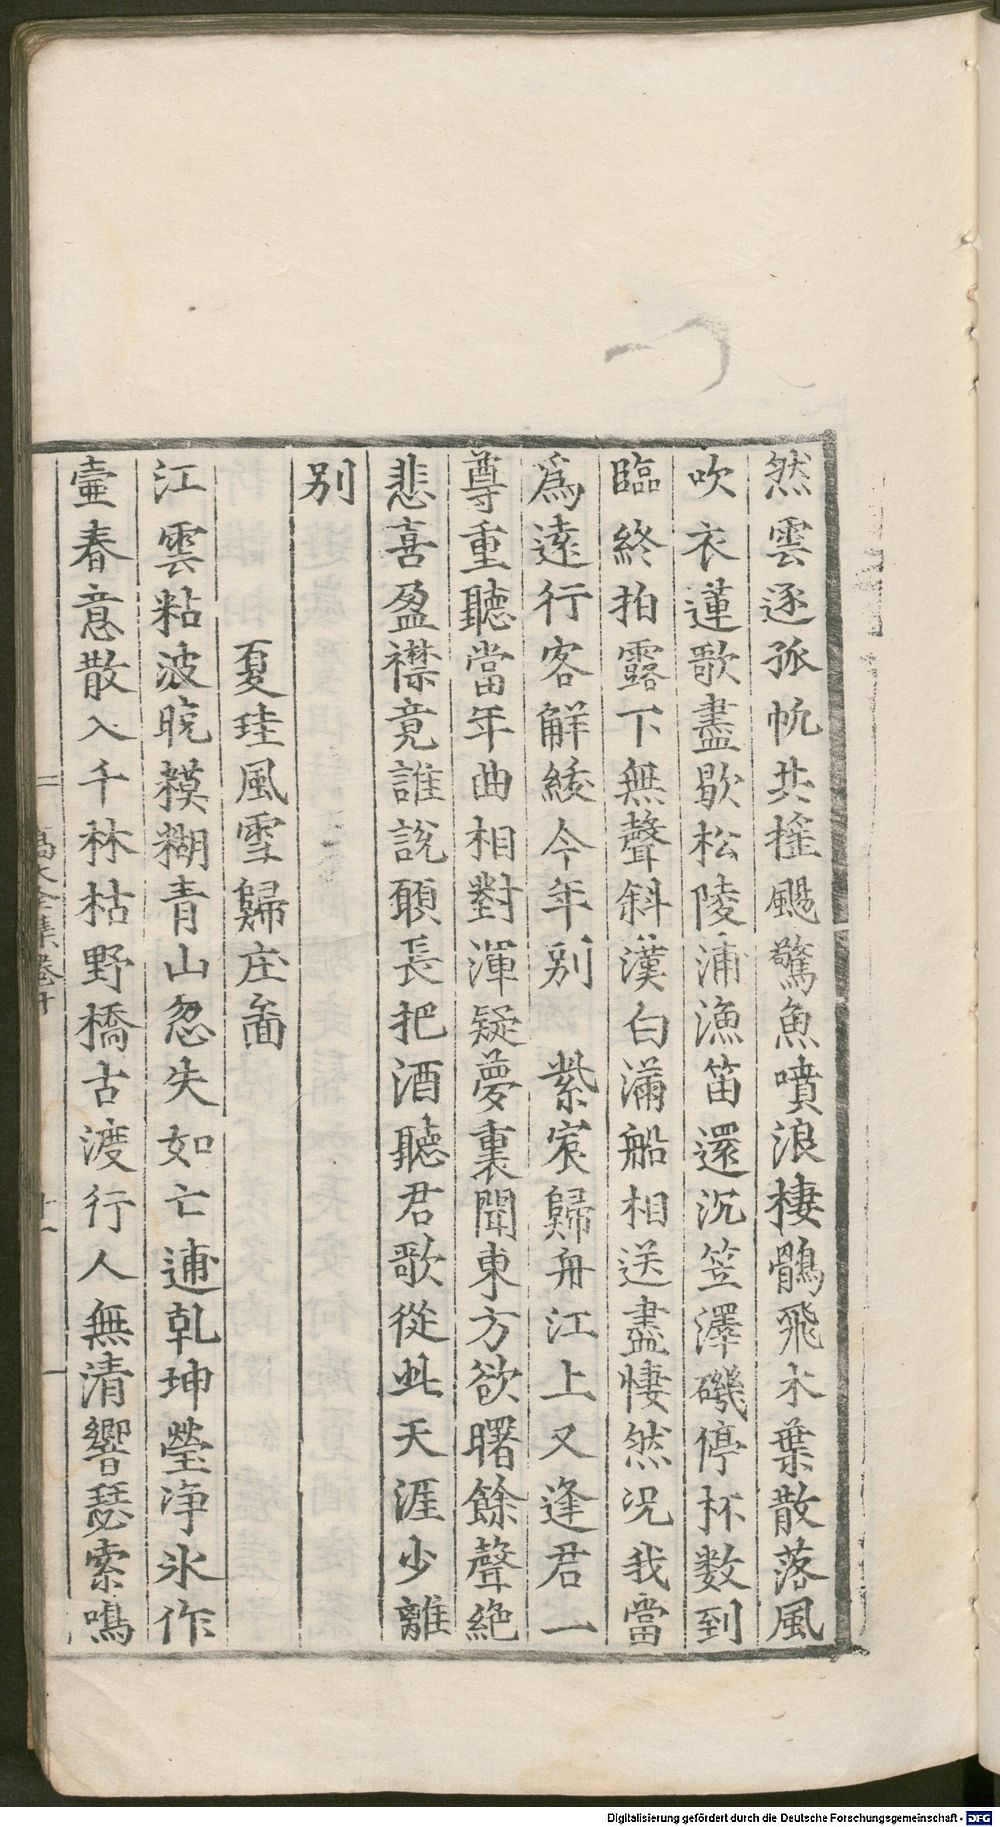 然雲逐孤帆共搖颺驚魚噴浪棲鶻飛木葉散落風
吹衣蓮歌盡歇松陵浦漁笛還沉笠澤磯停杯数到
臨終拍露下無聲斜漢白滿船相送盡悽然况我當
爲遠行客解綬今年别紫宸歸舟江上又逢君一
尊重聽當年曲相對渾疑夢裏聞東方欲曙餘聲絕
悲喜盈襟竟誰說願長把酒聽君歌從此天涯少離
别
夏珪風雪歸庄啚
江雲粘波晚糢糊青山忽失如亡逋乾坤瑩净氷作
壷春意散入千林枯野橋古渡行人無清響瑟索鳴
高太全集卷十
十一
Digitalisierung gefördert durch die Deutsche Forschungsgemeinschaft - DFG